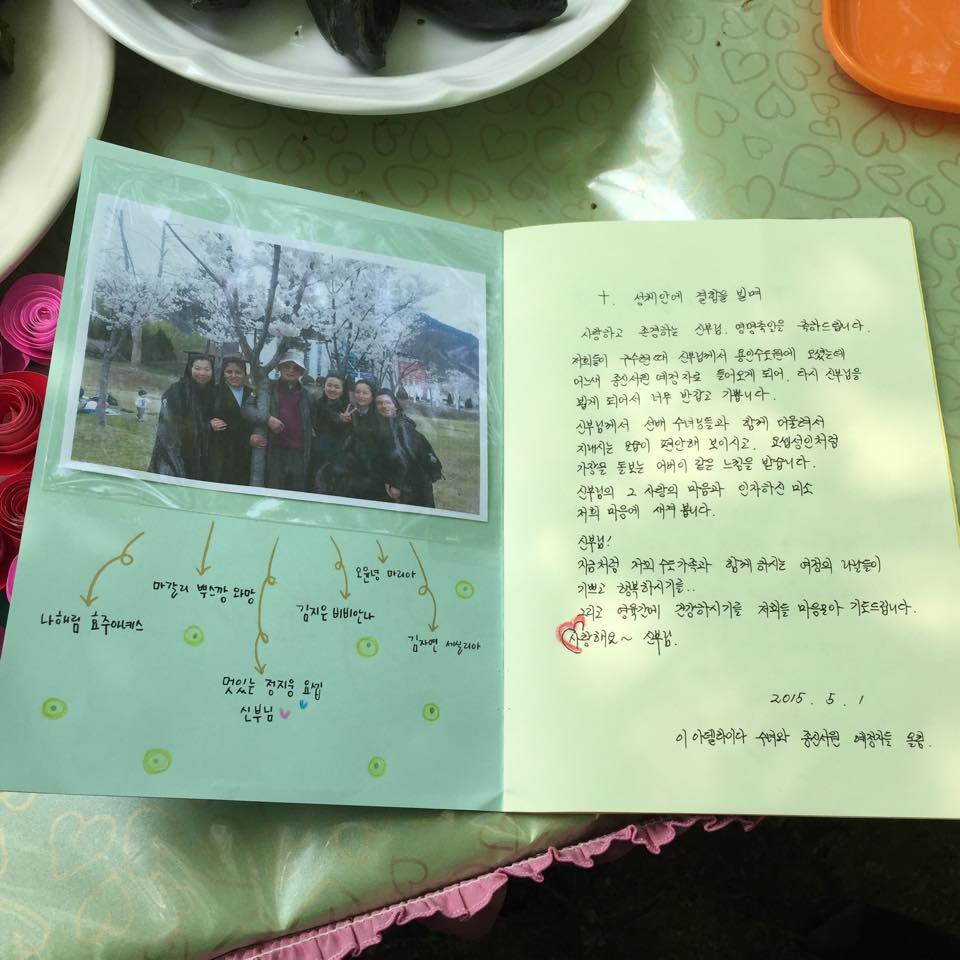 나해림 효주아네스
마갈리 뿍스깡 와망
멋있는 정지웅 요셉
신부님
김지은 비비안나
오윤녕 마리아
김자연 세실리아
十. 성체안에 결합을 빌며
사랑하고 존경하는 신부님. 영명축일을 축하드립니다.
저희들이 구수련때 신부님께서 용인수도원에 오셨는데
어느새 종신서원 예정자로 들어오게 되어. 다시 신부님을
뵙게 되어서 너무 반갑고 기쁩니다.
신부님께서 선배 수녀님들과 함께 어울려서
지내시는 모습이 편안해 보이시고, 요셉성인처럼
가정을 돌보는 아버이 같은 느낌을 받습니다.
신부님의 그 사랑의 마음과 인자하신 미소
저희 마음에 새겨 봅니다.
신부님!
지금처럼 저희 수도가족과 함께 하시는 여정의 나날들이
기쁘고 행복하시기를..
그리고 영육간에 건강하시기를 저희들 마음모아 기도드립니다.
사랑해요~ 신부님.
2015. 5. 1
이 아델라이다 수녀와 종신서원 예정자들 올림.